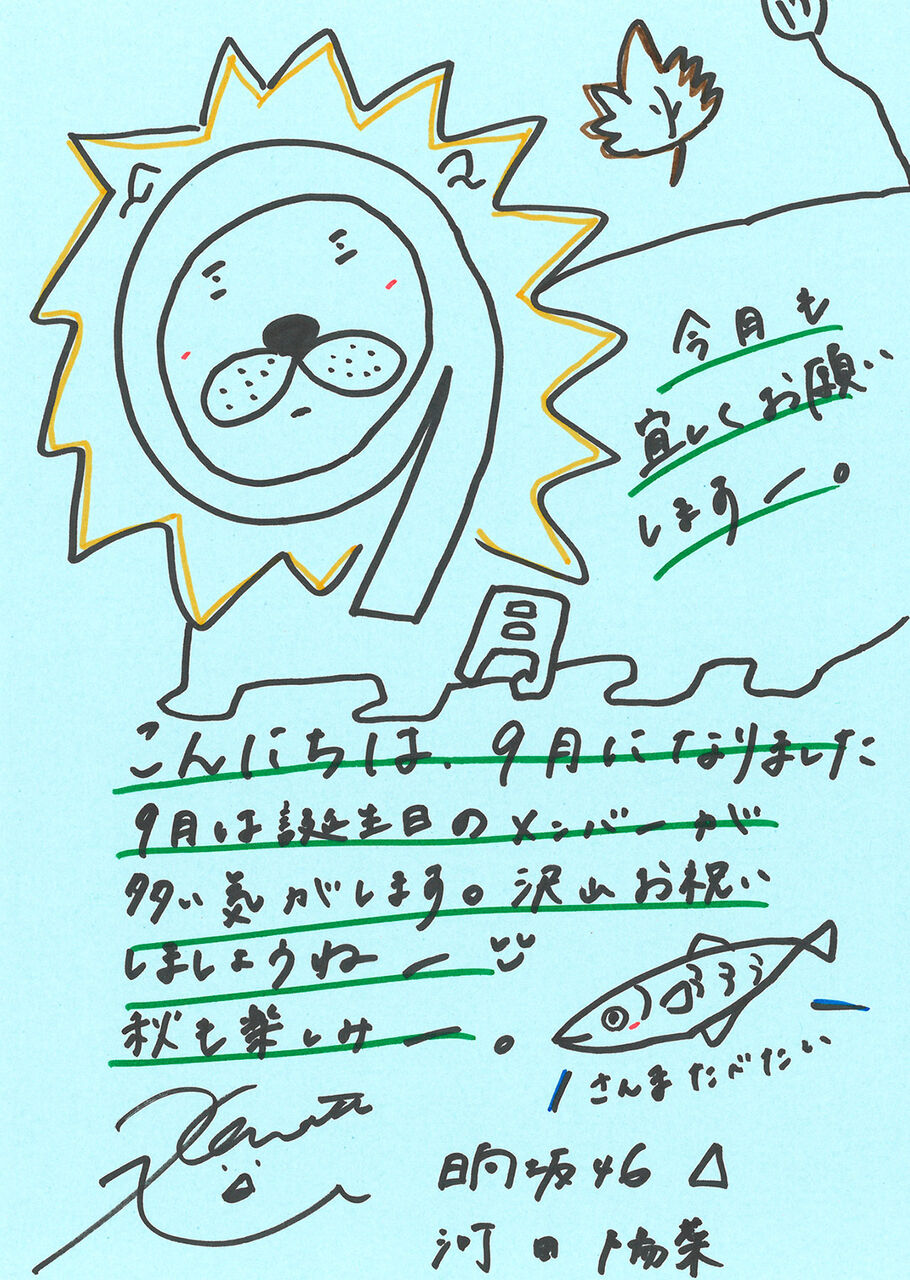 9
月
今月も
宜しくお願い
しますー。
こんにちは、9月になりました
9月は誕生日のメンバーが
多い気がします。沢山お祝い
しましょうねー
秋も楽しみー。
さんまたべたい
日向坂46
河田陽菜